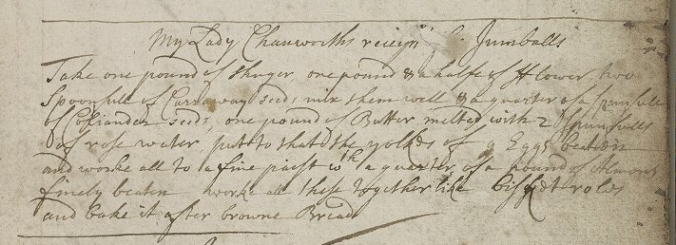 My Lady Chanworths receipt for Jumballs
Take one pound of shuger, one pound & a halfe of fflower, two
Spoonfull of Carraway seeds mix them well & a quarter of a spunfull
of Coriander seeds, one pound of Butter melted with 2 spunfulls
of rose water, put to that the yolkes of 9 Eggs beaten
and worke all to a fine paist wth a quarter of a pound of Almons
finely beaten worke all these together like bisket roles
and bake it after browne Bread